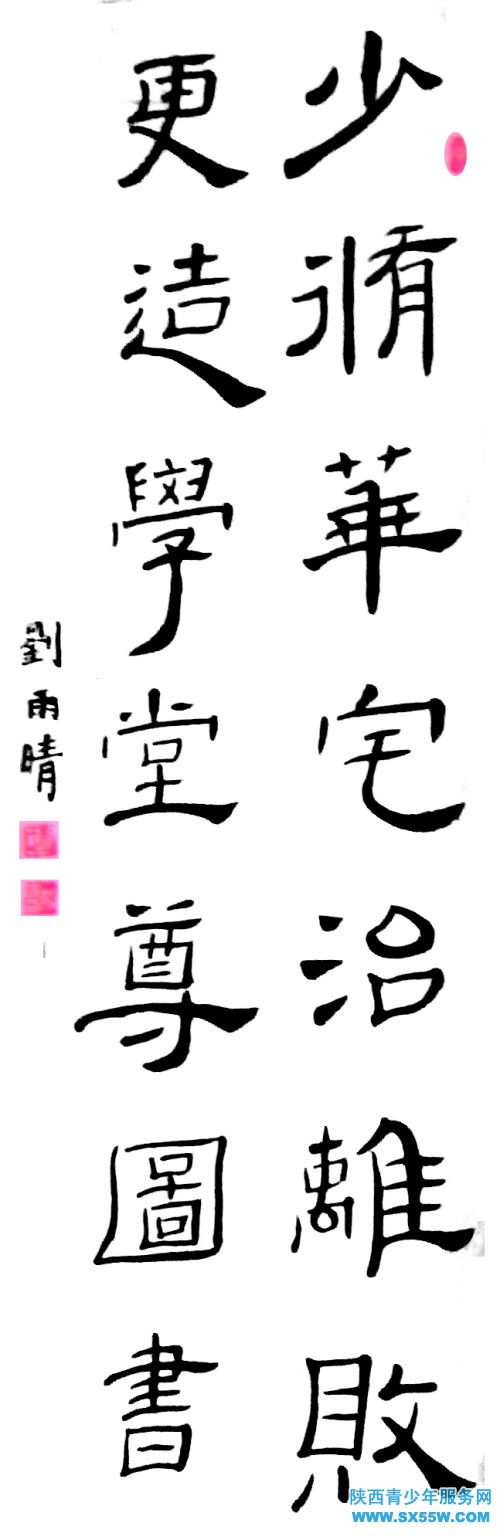 少脩華宅治離敗
更造學堂尊圖書
劉雨晴
陕西青少年服务网
WWW.SX55W.COM